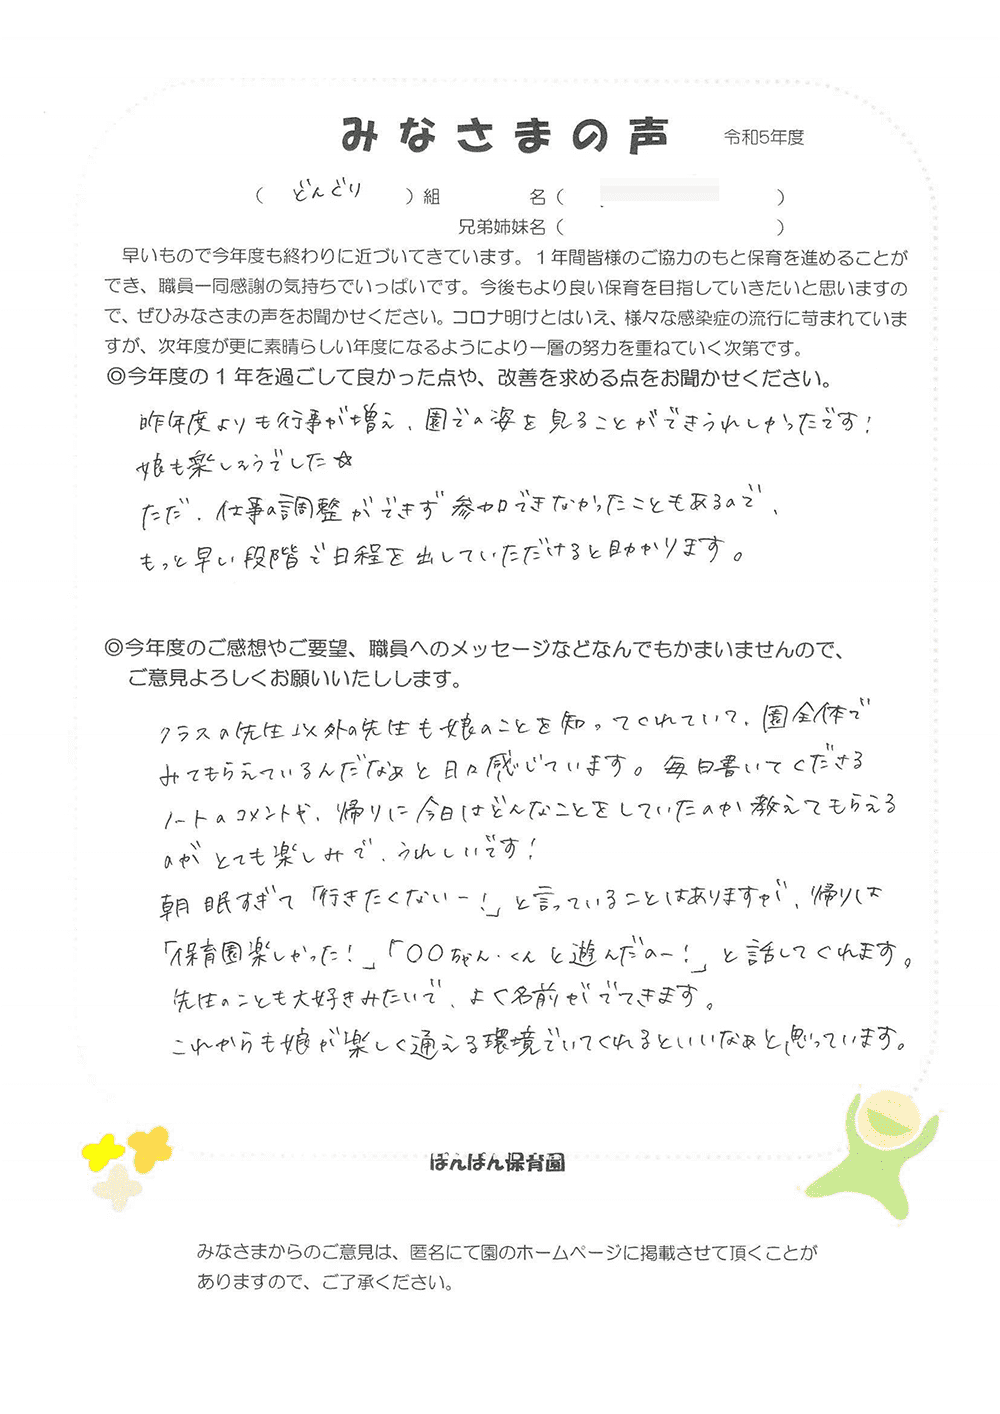 みなさまの声 令和5年度
( どんぐり )組 名( )
兄弟姉妹名( )
早いもので今年度も終わりに近づいてきています。1年間皆様のご協力のもと保育を進めることが
でき、職員一同感謝の気持ちでいっぱいです。今後もより良い保育を目指していきたいと思いますの
で、ぜひみなさまの声をお聞かせください。コロナ明けとはいえ、様々な感染症の流行に苛まれていま
すが、次年度が更に素晴らしい年度になるようにより一層の努力を重ねていく次第です。
◎今年度の1年を過ごして良かった点や、改善を求める点をお聞かせください。
昨年度よりも行事が増え、園での姿を見ることができうれしかったです!
娘も楽しそうでした☆
ただ、仕事の調整ができず参加できなかったこともあるので、
もっと早い段階で日程を出していただけると助かります。
◎今年度のご感想やご要望、職員へのメッセージなどなんでもかまいませんので、
ご意見よろしくお願いいたしします。
クラスの先生以外の先生も娘のことを知ってくれていて、園全体で
みてもらえているんだなぁと日々感じています。毎日書いてくださる
ノートのコメントや、帰りに今日はどんなことをしていたのか教えてもらえる
のがとても楽しみで、うれしいです!
朝眠すぎて「行きたくないー!」と言っていることはありますが、帰りは
「保育園楽しかった!」「〇〇ちゃん・くんと遊んだのー!」と話してくれます。
先生のことも大好きみたいで、よく名前がでてきます。
これからも娘が楽しく通える環境でいてくれるといいなぁと思っています。
ぽんぽん保育園
みなさまからのご意見は、匿名にて園のホームページに掲載させて頂くことが
ありますので、ご了承ください。